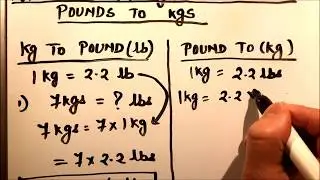 POUNDS TO KGS
KG TO POUND (lb)
1 KG = 2.2 lb
1) 7 KGS = ? lbs
7 KGS = 7 × 1 KG
= 7 × 2.2 lbs
POUND TO (KG)
1KG = 2.2 lbs
1KG = 2.2